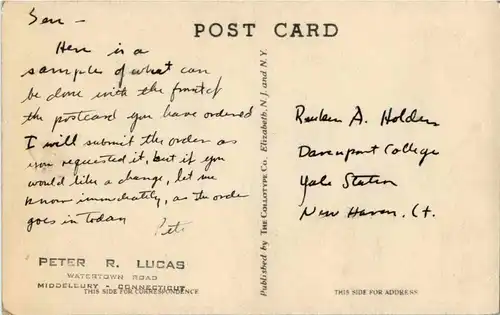 POST CARD
Sen -
Here is a
sample of what can
be done with the front of
the postcard you have ordered
I will submit the order as
you requested it, but if you
would like a change, let me
know immediately, as the order
goes in today
Pete
PETER R. LUCAS
WATERTOWN ROAD
MIDDLEBURY - CONNECTICUT
THIS SIDE FOR CORRESPONDENCE
Published by THE COLLOTYPE CO., Elizabeth, N. J. and N. Y.
Reuben A. Holden
Davenport College
Yale Station
New Haven. Ct.
THIS SIDE FOR ADDRESS